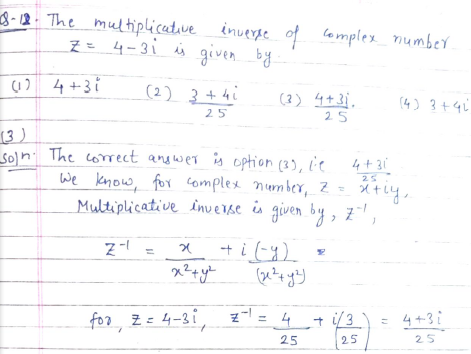 Q-12. The multiplicative inverse of complex number
z = 4-3i is given by.
(1) 4+3i (2) 3+4i/25 (3) 4+3i/25. (4) 3+4i
(3)
Soln. The correct answer is option (3), i.e 4+3i/25
We know, for complex number, z = x+iy,
Multiplicative inverse is given by, z⁻¹,
z⁻¹ = x/x²+y² + i (-y)/(x²+y²)
for, z = 4-3i, z⁻¹ = 4/25 + i(3/25) = 4+3i/25